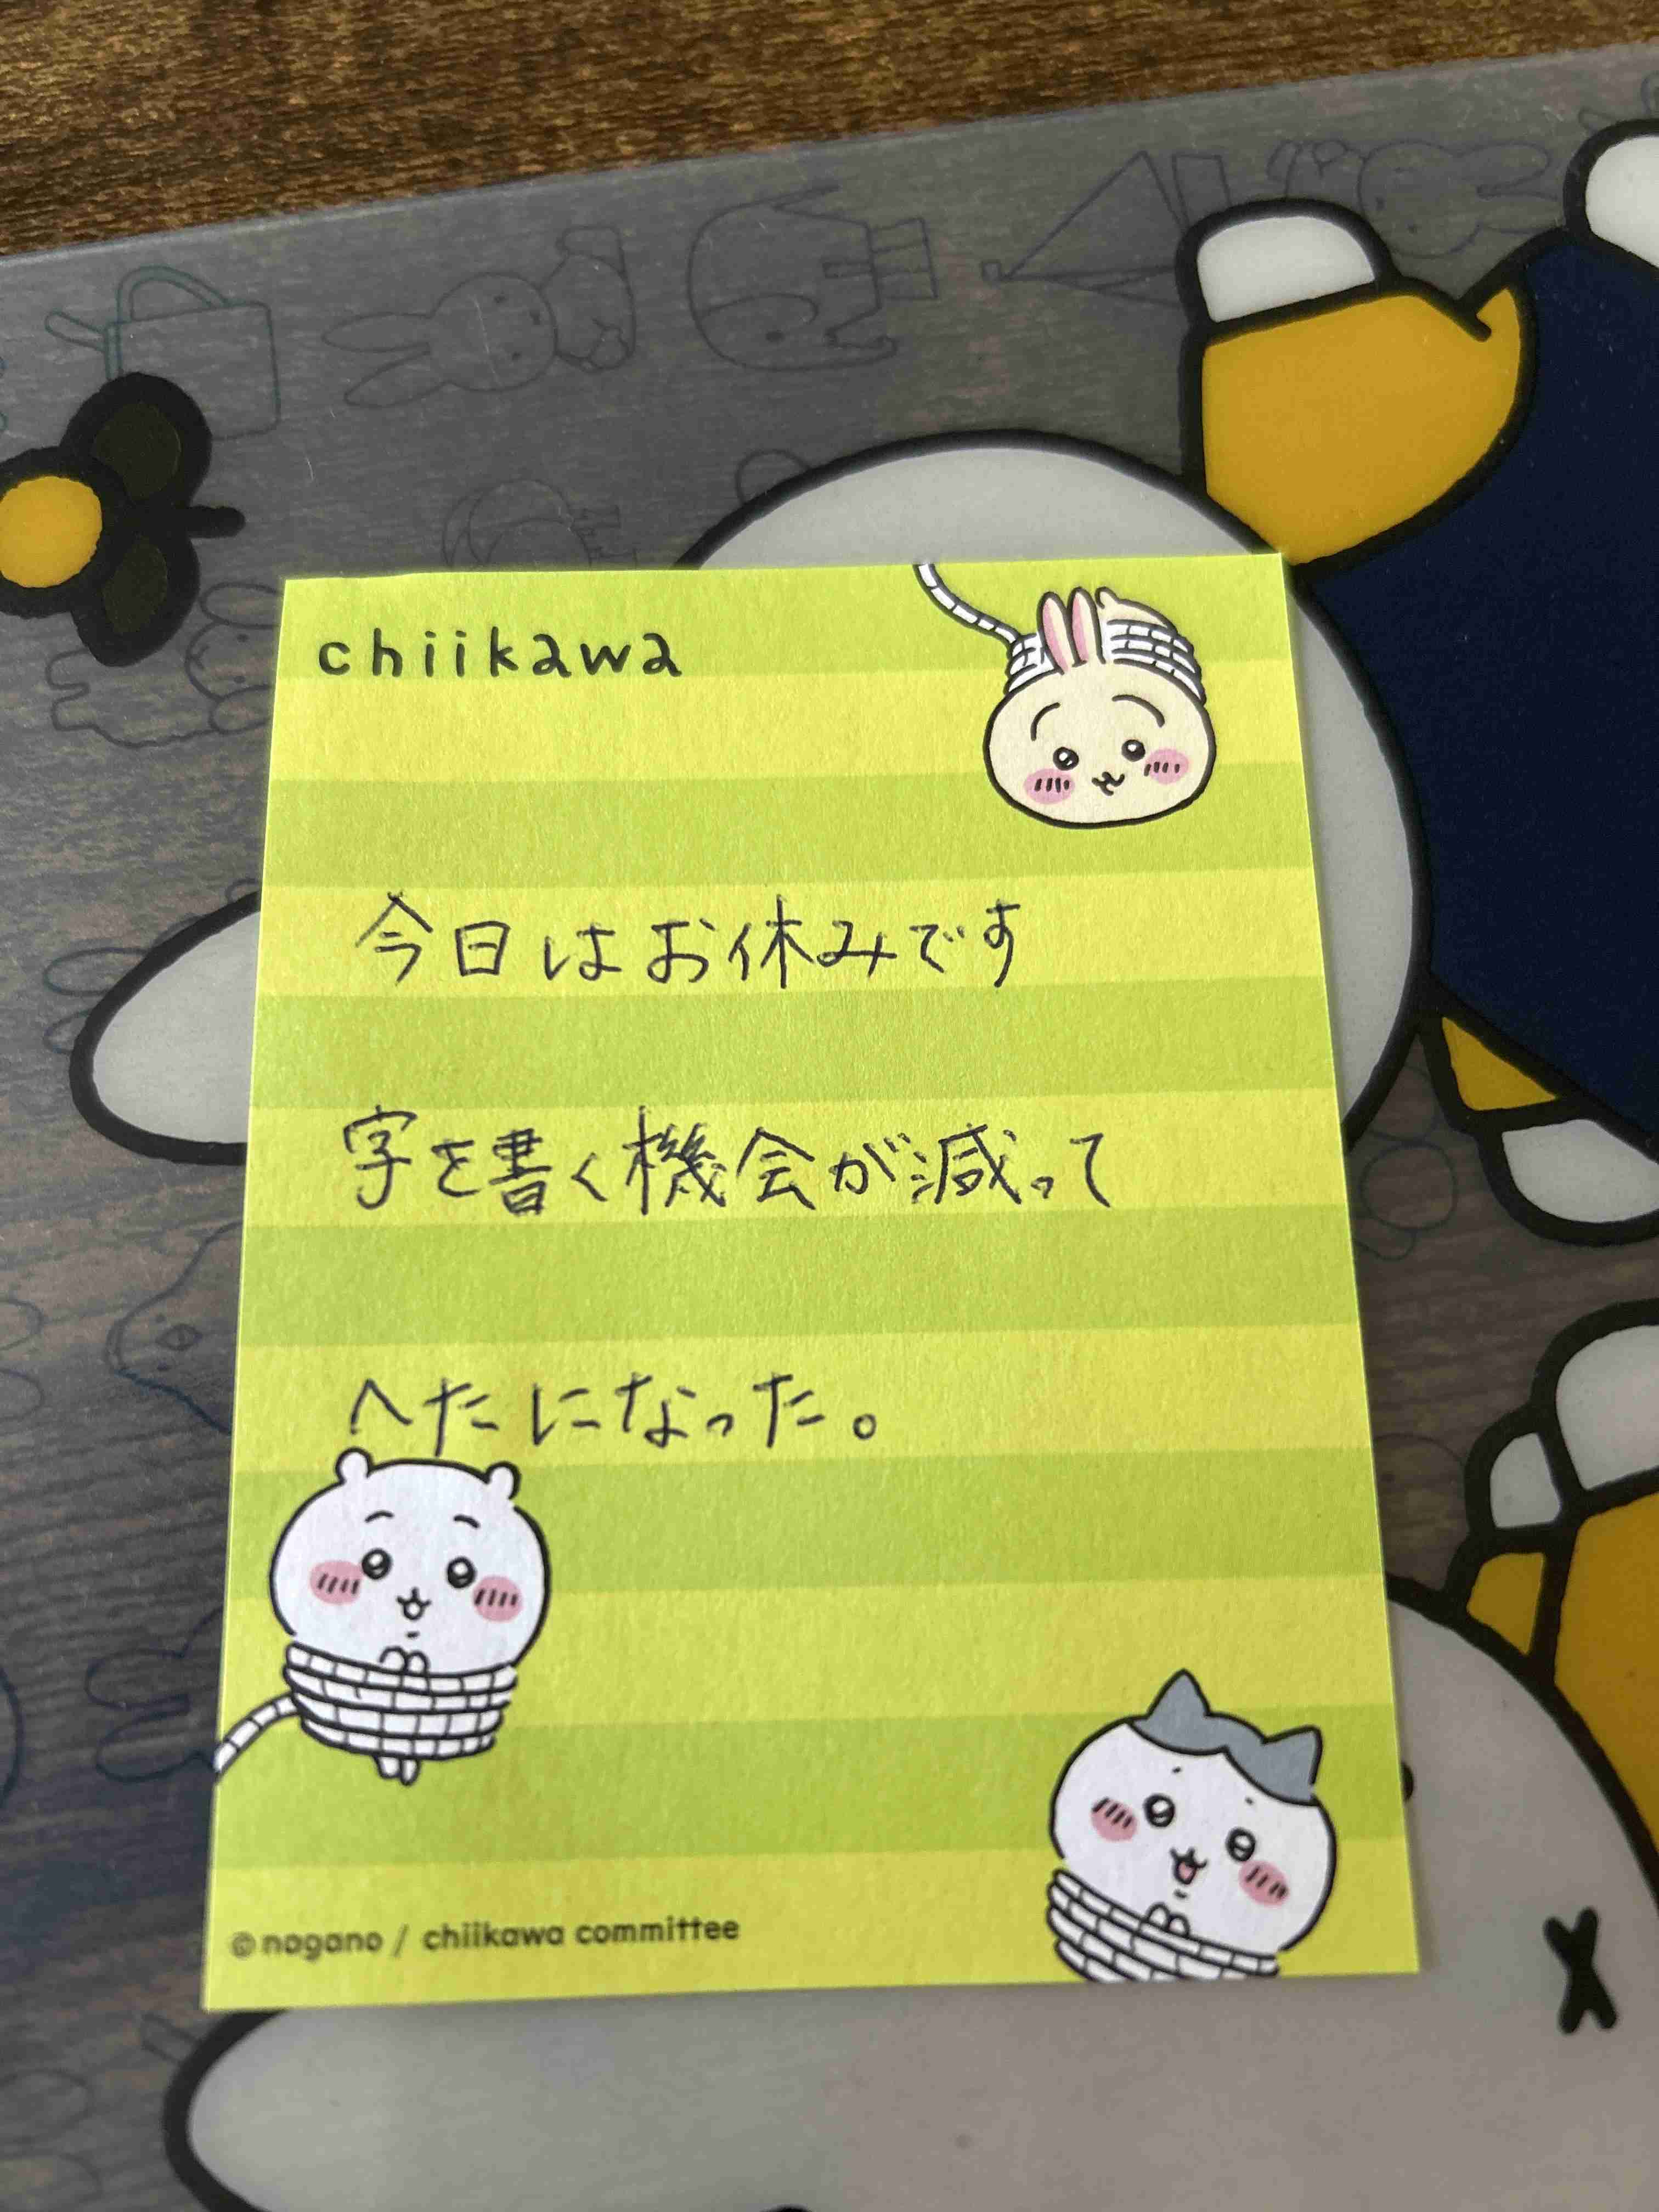 chiikawa
今日はお休みです
字を書く機会が減って
へたになった。
©nagano / chiikawa committee